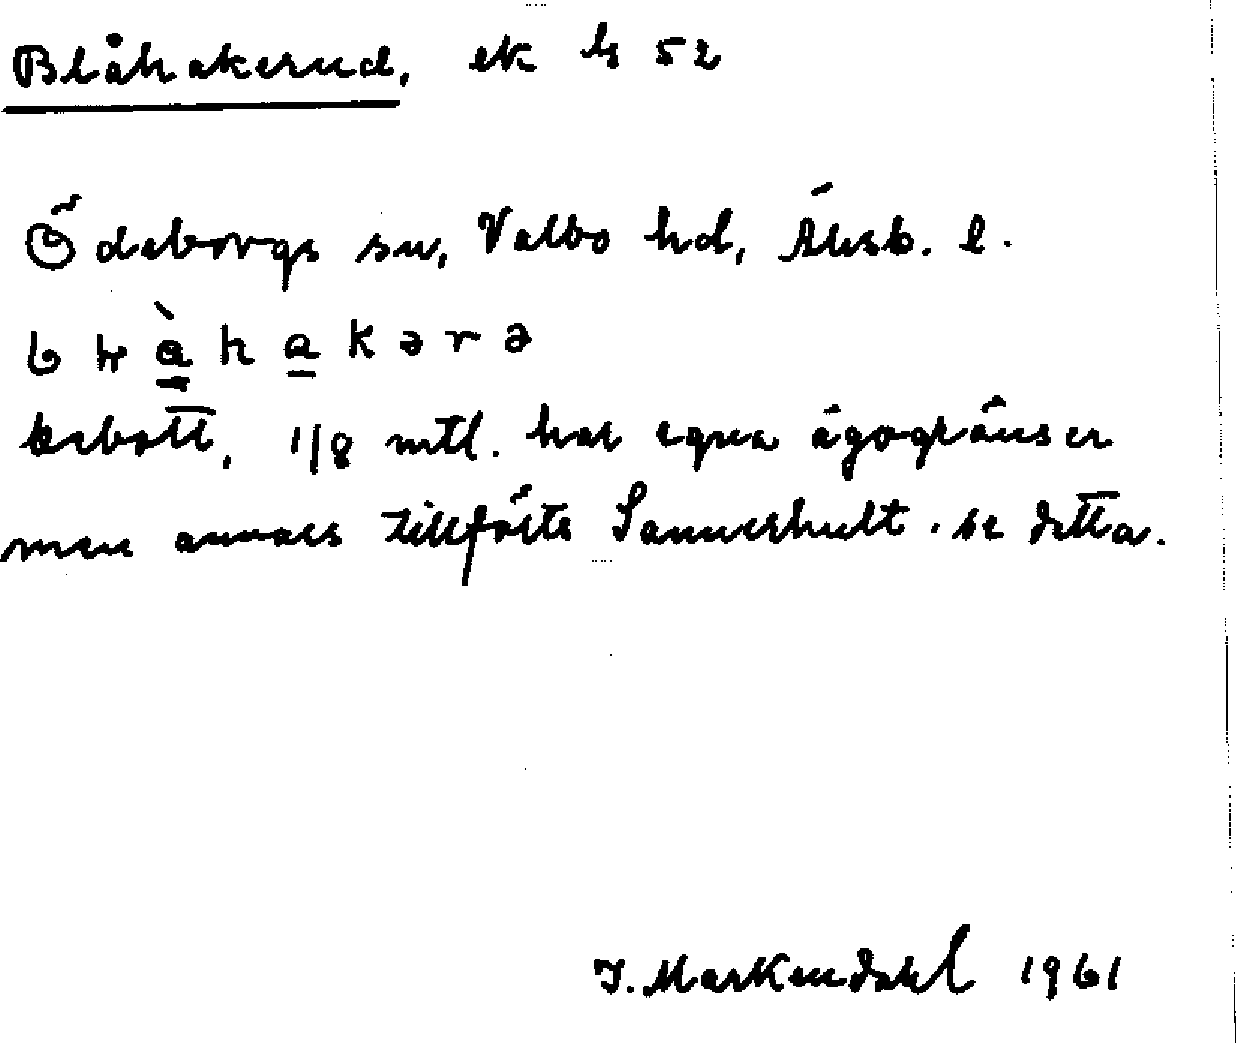 Blåhakerud, ek h 52
Ödeborgs sn, Valbo hd, Älvsb. l.
a h a k ə r ə
bebott, 1/8 mtl. har egna ägogränser
men annars tillförts Sannerhult. se detta.
I. Markendahl 1961